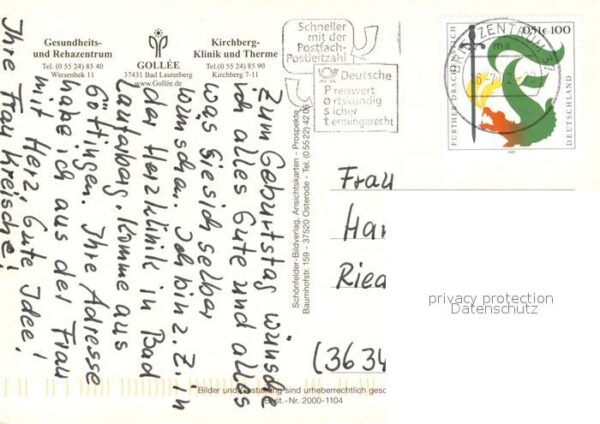 Gesundheits-
und Rehazentrum
Tel. (0 55 24) 85 40
Wiesenbek 11
GOLLÉE
37431 Bad Lauterberg
www.Gollée.de
Kirchberg-
Klinik und Therme
Tel. (0 55 24) 85 90
Kirchberg 7-11
Schneller
mit der
Postfach-
Postleitzahl
Deutsche
Preiswert
Ortskundig
Sicher
Termingerecht
FURTHER DRACHENSTICH
0,51€ 100
DEUTSCHLAND
BRIEFZENTRUM 37
ma
Zum Geburtstag wünsche
ich alles Gute und alles
was Sie sich selber
wünschen. Ich bin z. Z. in
der Herzklinik in Bad
Lauterberg. Komme aus
Göttingen. Ihre Adresse
habe ich aus der Frau
mit Herz. Gute Idee!
Ihre Frau Kreische!
Schönfelder-Bildverlag, Ansichtskarten - Prospekte
Baumhofstr. 159 - 37520 Osterode - Tel. (0 55 22) 42 06
Frau
Han
Ried
(3634
privacy protection
Datenschutz
Bilder und Gestaltung sind urheberrechtlich gesc
Best.-Nr. 2000-1104